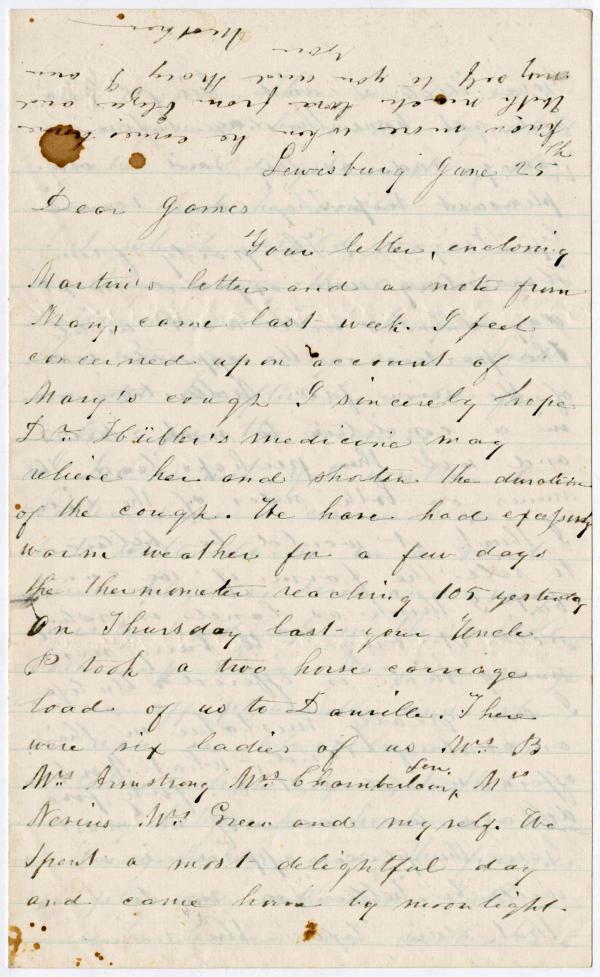 know more when he comes home
With much love from Eliza and
my self to you and Mary I am
your
Mother
Lewisburg June 25th
Dear James
Your letter, enclosing
Martin's letter and a note from
Mary, came last week. I feel
concerned upon account of
Mary's cough I sincerely hope
Dr Hübler's medicine may
relieve her and shoten the duration
of the cough. We have had exceссively
warm weather for a few days
the thermometer reaching 105 yesterday
On Thursday last your Uncle
P took a two horse carriage
load of us to Danville. There
were six ladies of us Mrs B
Mrs Armstrong Mrs Chamberlain, Sen, Mrs
Nevius Mrs Green and myself. We
spent a most delightful day
and came home by moonlight.